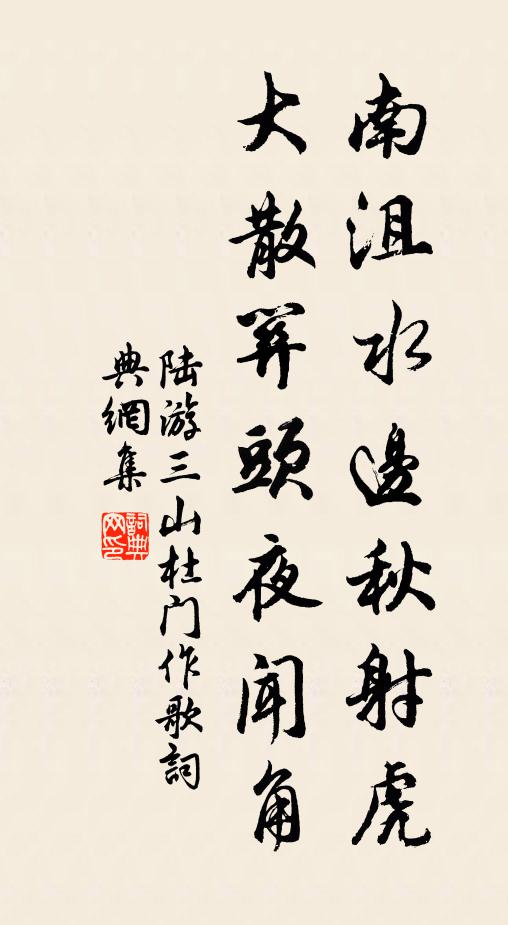 南沮水邊秋射虎
大散關頭夜聞角
陆游三山杜门作歌詞
典網集
詞典网印